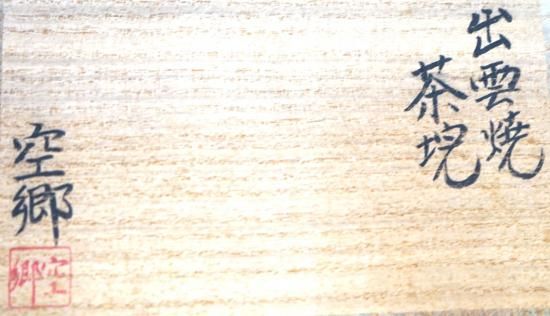 出雲燒
茶垸
空郷
空郷